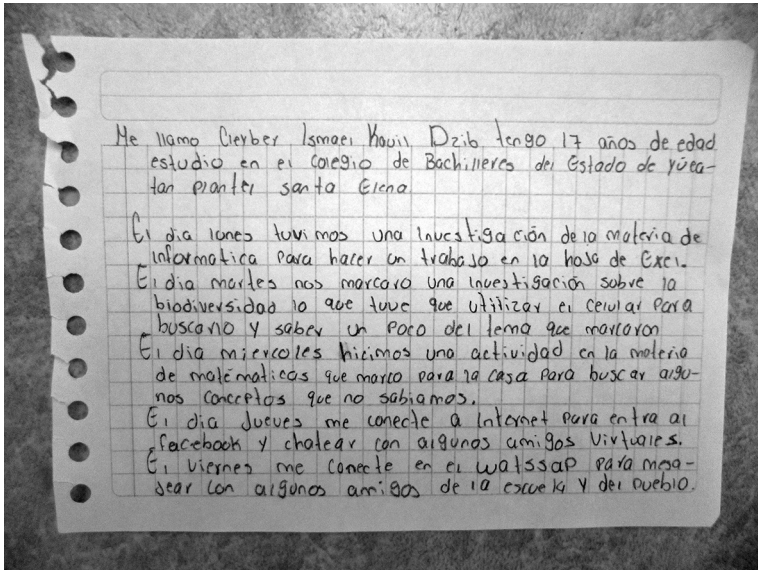 Me llamo Cleyber Ismael Kauil Dzib tengo 17 años de edad
estudio en el colegio de Bachilleres del Estado de yúca-
tan plantel santa Elena
El dia lunes tuvimos una investigación de la materia de
informatica para hacer un trabajo en la hosa de Excl.
El dia martes nos marcaro una investigación sobre la
biodiversidad lo que tuve que utilizar el celular para
buscarlo y saber un poco del tema que marcaron
El dia miercoles hicimos una actividad en la materia
de matématicas que marco para la casa para buscar algu-
nos conceptos que no sabiamos.
El dia Jueves me conecte a internet para entra al
facebook y chatear con algunos amigos virtuales.
El viernes me conecte en el watssap para mesa-
sear con algunos amigos de la escuela y del pueblo.